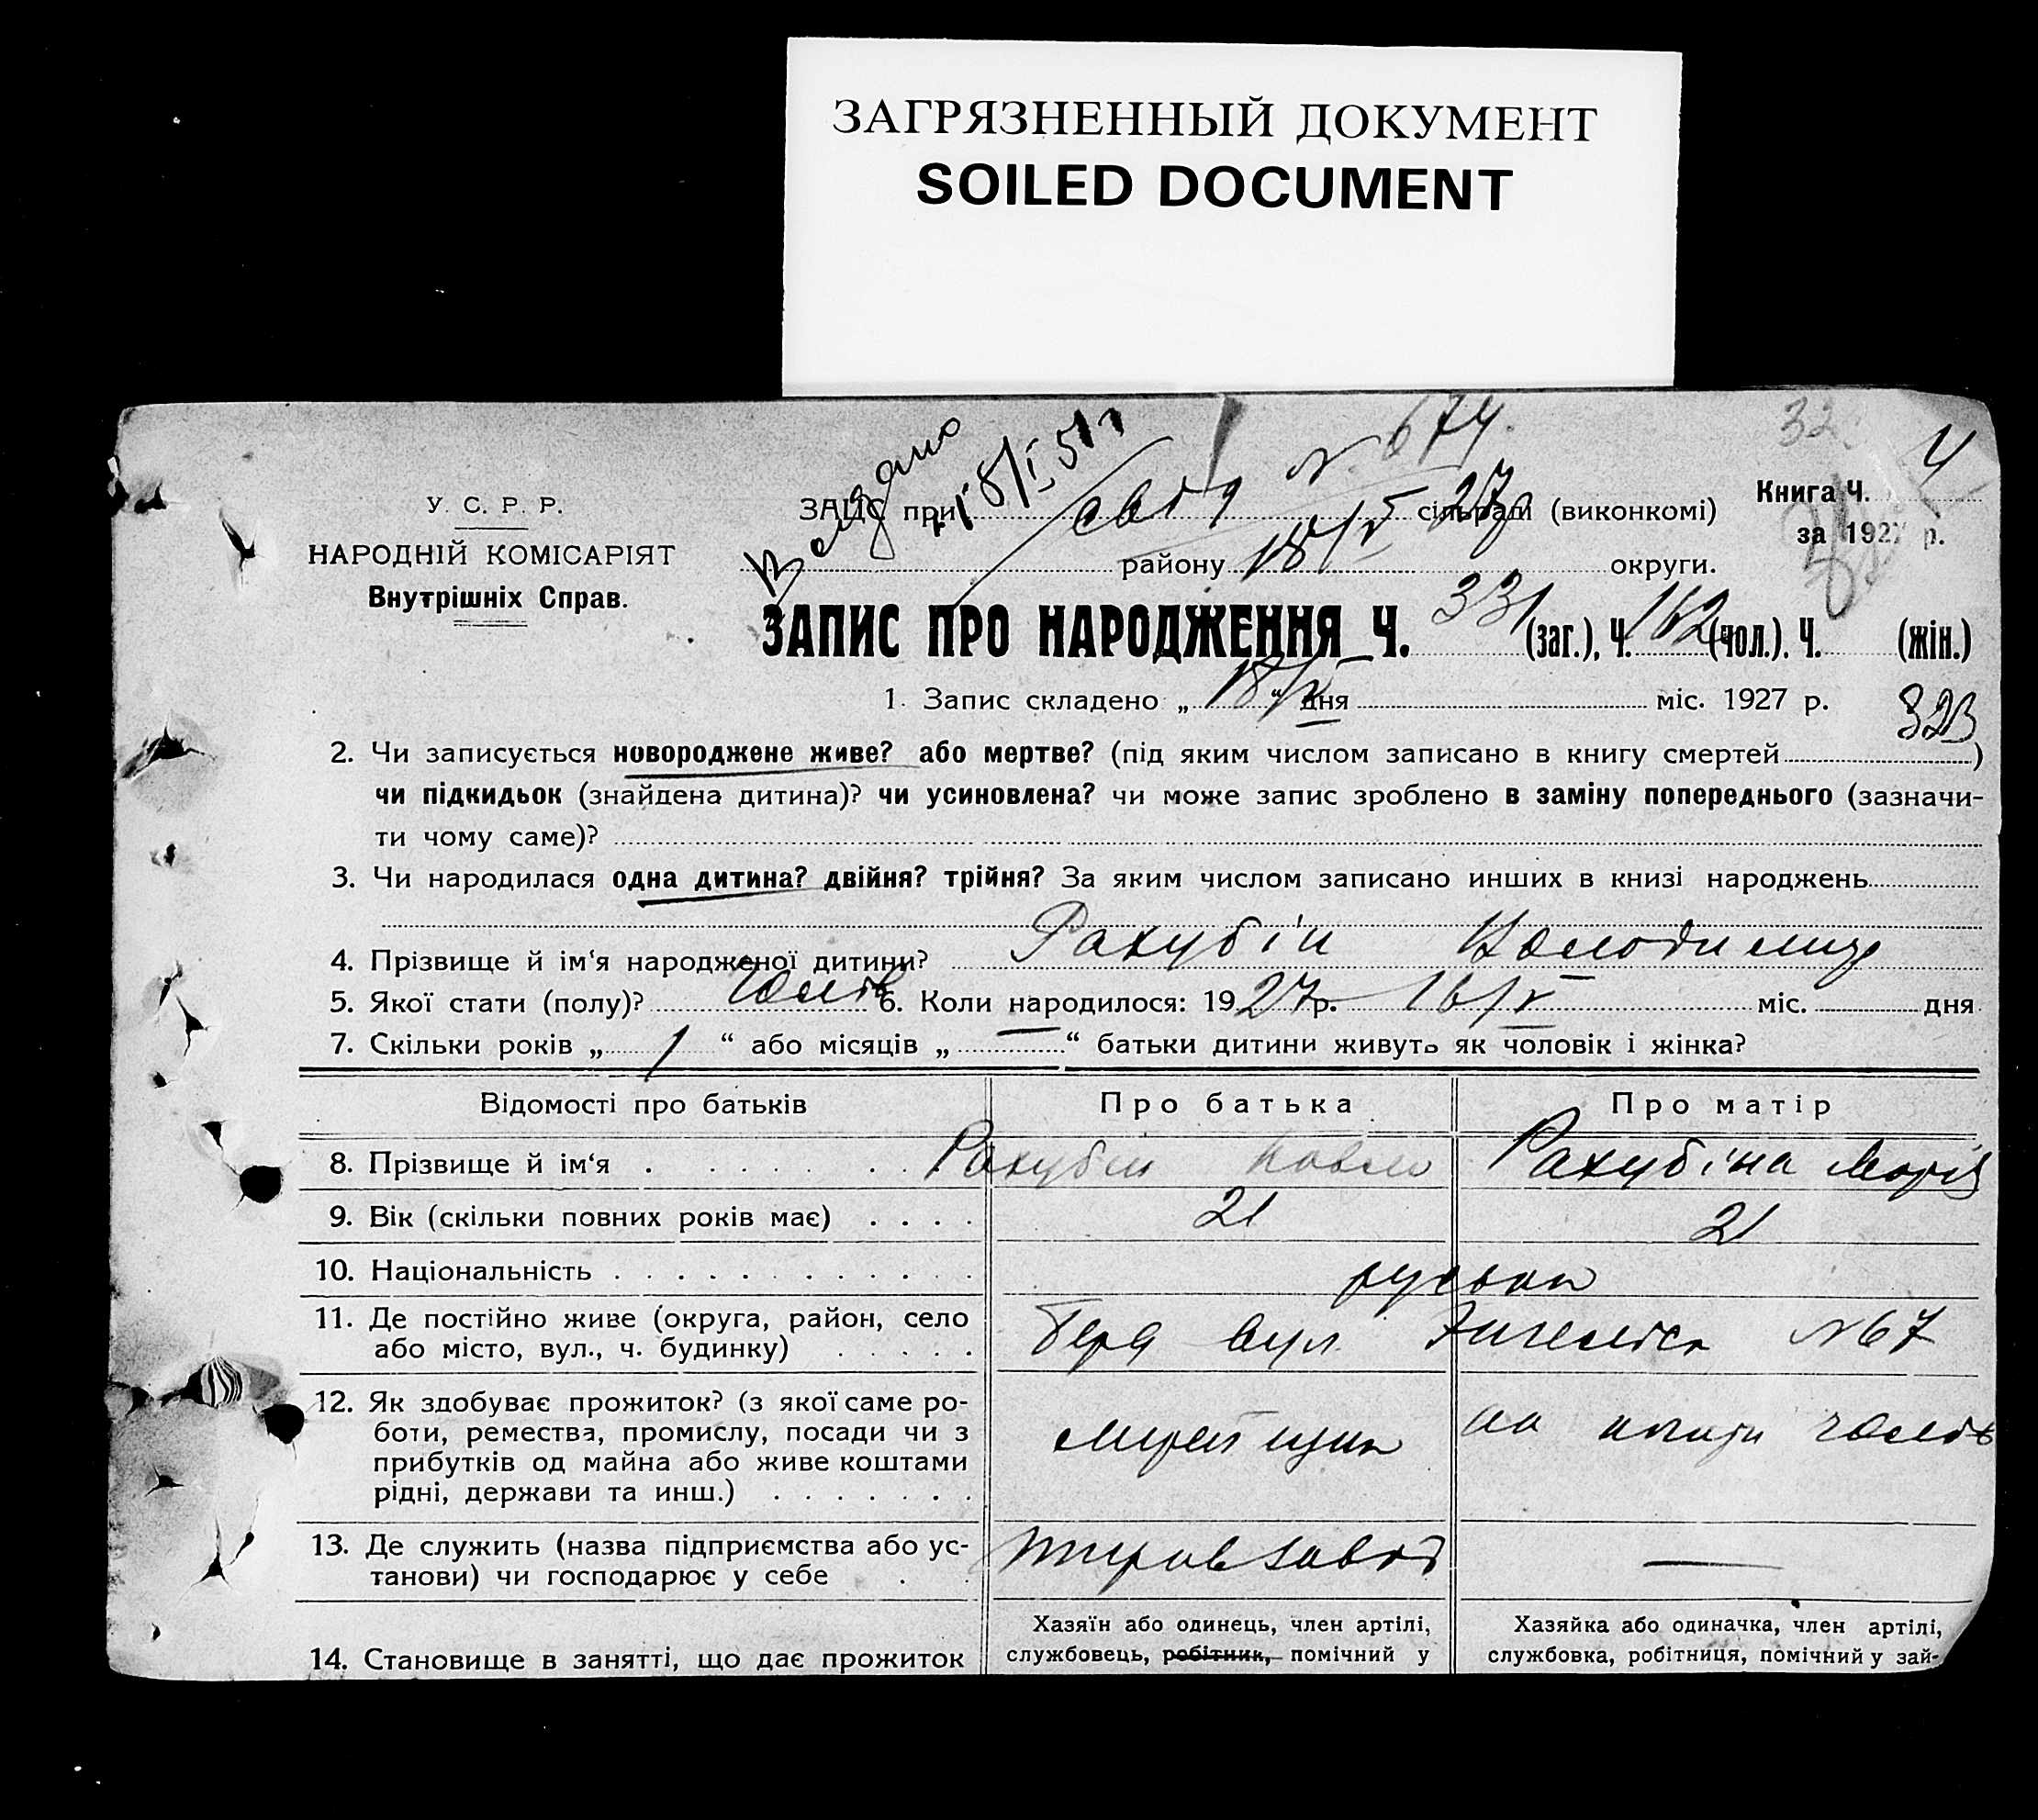 ЗАГРЯЗНЕННЫЙ ДОКУМЕНТ
SOILED DOCUMENT
N. 674.
4
Видано
18/I 51 г
У. С. Р. Р.
НАРОДНІЙ КОМІСАРІЯТ
Внутрішніх Справ.
ЗАЦС при сільраді (виконкомі)
Книга Ч.
за 1927 р.
району 18/V 27р округи.
ЗАПИС ПРО НАРОДЖЕННЯ Ч. 331 (заг.), Ч. 162 (чол.). Ч. (жін.)
1. Запис складено „ 18/V “ дня міс. 1927 р.
323
2. Чи записується новороджене живе? або мертве? (під яким числом записано в книгу смертей )
чи підкидьок (знайдена дитина)? чи усиновлена? чи може запис зроблено в заміну попереднього (зазначи-
ти чому саме)?
3. Чи народилася одна дитина? двійня? трійня? За яким числом записано инших в книзі народжень
4. Прізвище й ім‘я народженої дитини? Рахубін Володимир
5. Якої стати (полу)? чолов 6. Коли народилося: 1927 р. 16/V міс. дня
7. Скільки років „ 1 “ або місяців „ — “ батьки дитини живуть як чоловік і жінка?
Відомості про батьків Про батька Про матір
8. Прізвище й ім‘я Рахубін Павло Рахубіна Марія
9. Вік (скільки повних років має) 21 21
10. Національність
11. Де постійно живе (округа, район, село
або місто, вул., ч. будинку) вул. Енгельса N 67
12. Як здобуває прожиток? (з якої саме ро-
боти, ремества, промислу, посади чи з
прибутків од майна або живе коштами
рідні, держави та инш.)
13. Де служить (назва підприємства або ус-
танови) чи господарює у себе завод —
Хазяїн або одинець, член артілі, Хазяйка або одиначка, член артілі,
14. Становище в занятті, що дає прожиток службовець, робітник, помічний у службовка, робітниця, помічний у зай-